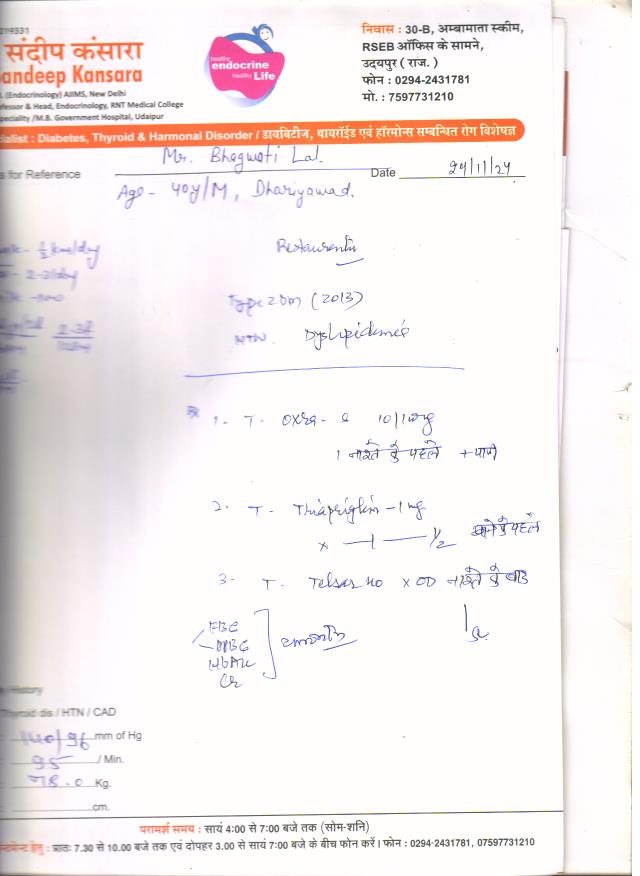 219331
संदीप कंसारा
andeep Kansara
(Endocrinology) AIIMS, New Delhi
fessor & Head, Endocrinology, RNT Medical College
peciality /M.B. Government Hospital, Udaipur
healthy
endocrine
healthy Life
निवास : 30-B, अम्बामाता स्कीम,
RSEB ऑफिस के सामने,
उदयपुर ( राज. )
फोन : 0294-2431781
मो. : 7597731210
ialist : Diabetes, Thyroid & Harmonal Disorder / डायबिटीज, थायरॉईड एवं हॉरमोन्स सम्बन्धित रोग विशेषज्ञ
Mr. Bhagwati Lal.
s for Reference
Date 29/11/24
Age - 40y/M, Dhariyawad.
1/2 km/day
2-3/day
Type 2 DM (2013)
HTN. Dyslipidemia
1- T- 10/1mg
1 नाश्ते के पहले + पानी
2. T- - 1 mg
x — 1 — 1/2 खाने के पहले
3- T- Telsar 40 x OD नाश्ते के बाद
FBG
PPBG
HbA1c
Cr
/ History
Thyroid dis / HTN / CAD
140/96 mm of Hg
95 / Min.
78.0 Kg.
cm.
परामर्श समय : सायं 4:00 से 7:00 बजे तक (सोम-शनि)
न्टमेन्ट हेतु : प्रातः 7.30 से 10.00 बजे तक एवं दोपहर 3.00 से सायं 7:00 बजे के बीच फोन करें। फोन : 0294-2431781, 07597731210